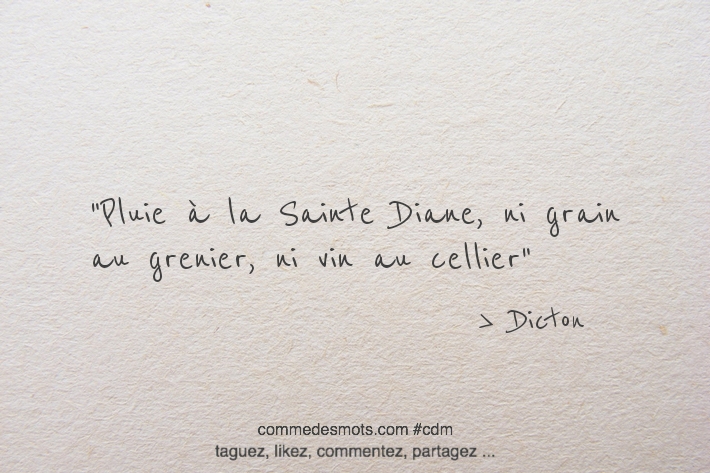 "Pluie à la Sainte Diane, ni grain
au grenier, ni vin au cellier"
> Dicton
commedesmots.com #cdm
taguez, likez, commentez, partagez ...